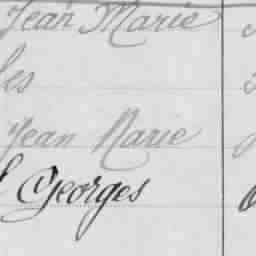 Jean Marie
les
Jean Marie
Georges